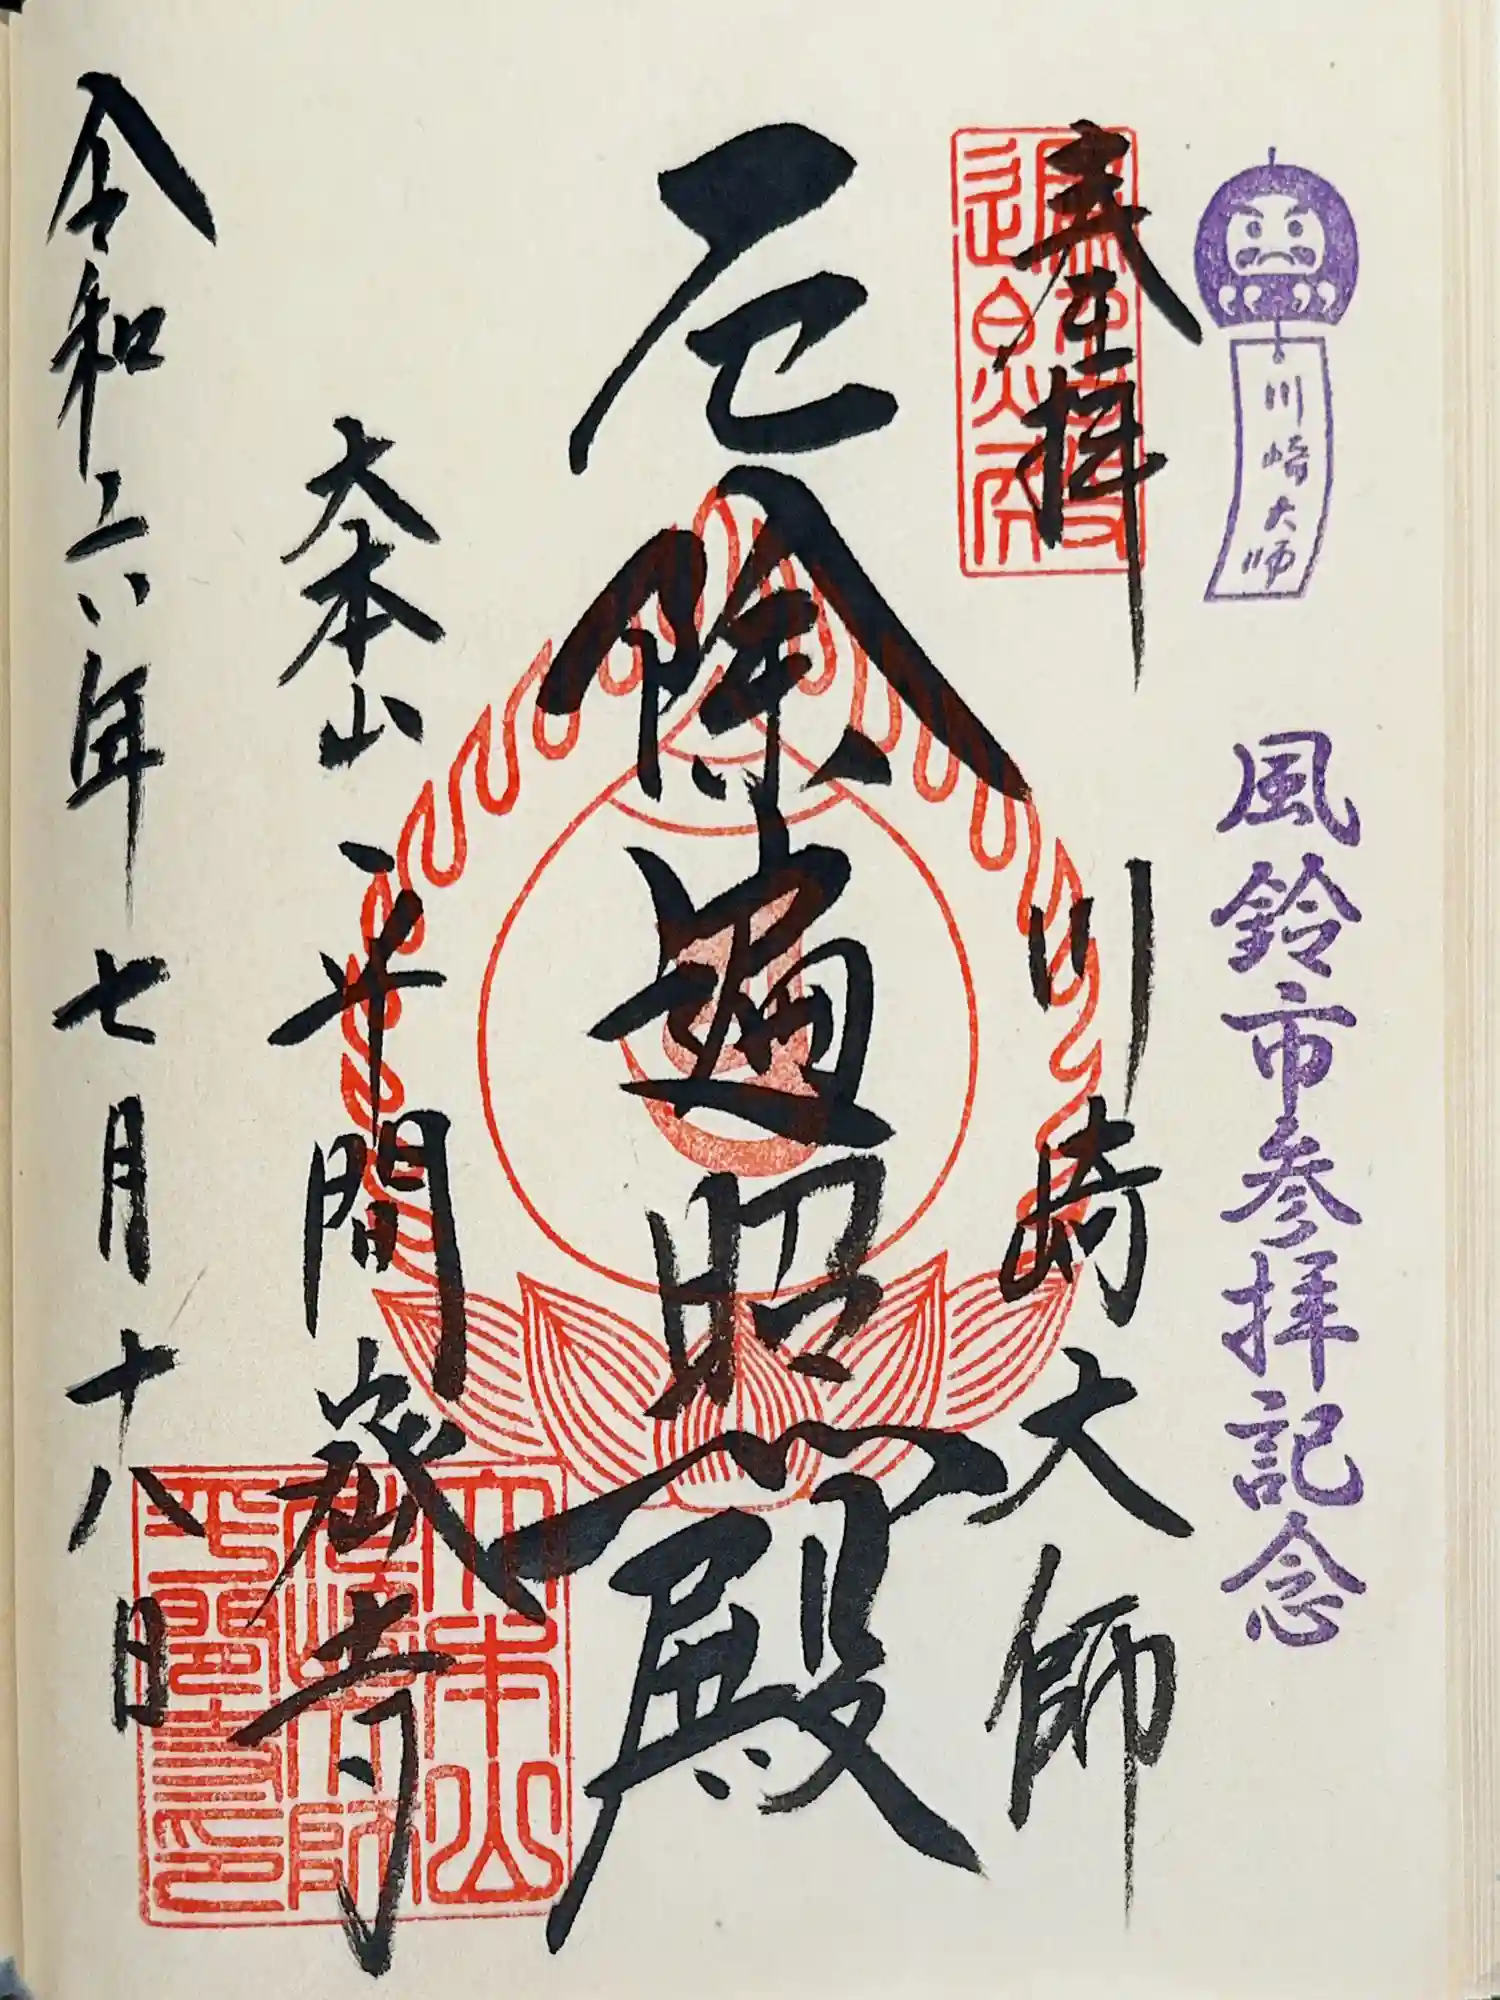 川崎大師
風鈴市参拝記念
奉拝
川崎大師
厄除遍照殿
大本山
平間密寺
令和六年七月十八日
大本山
川崎大師
平間寺印